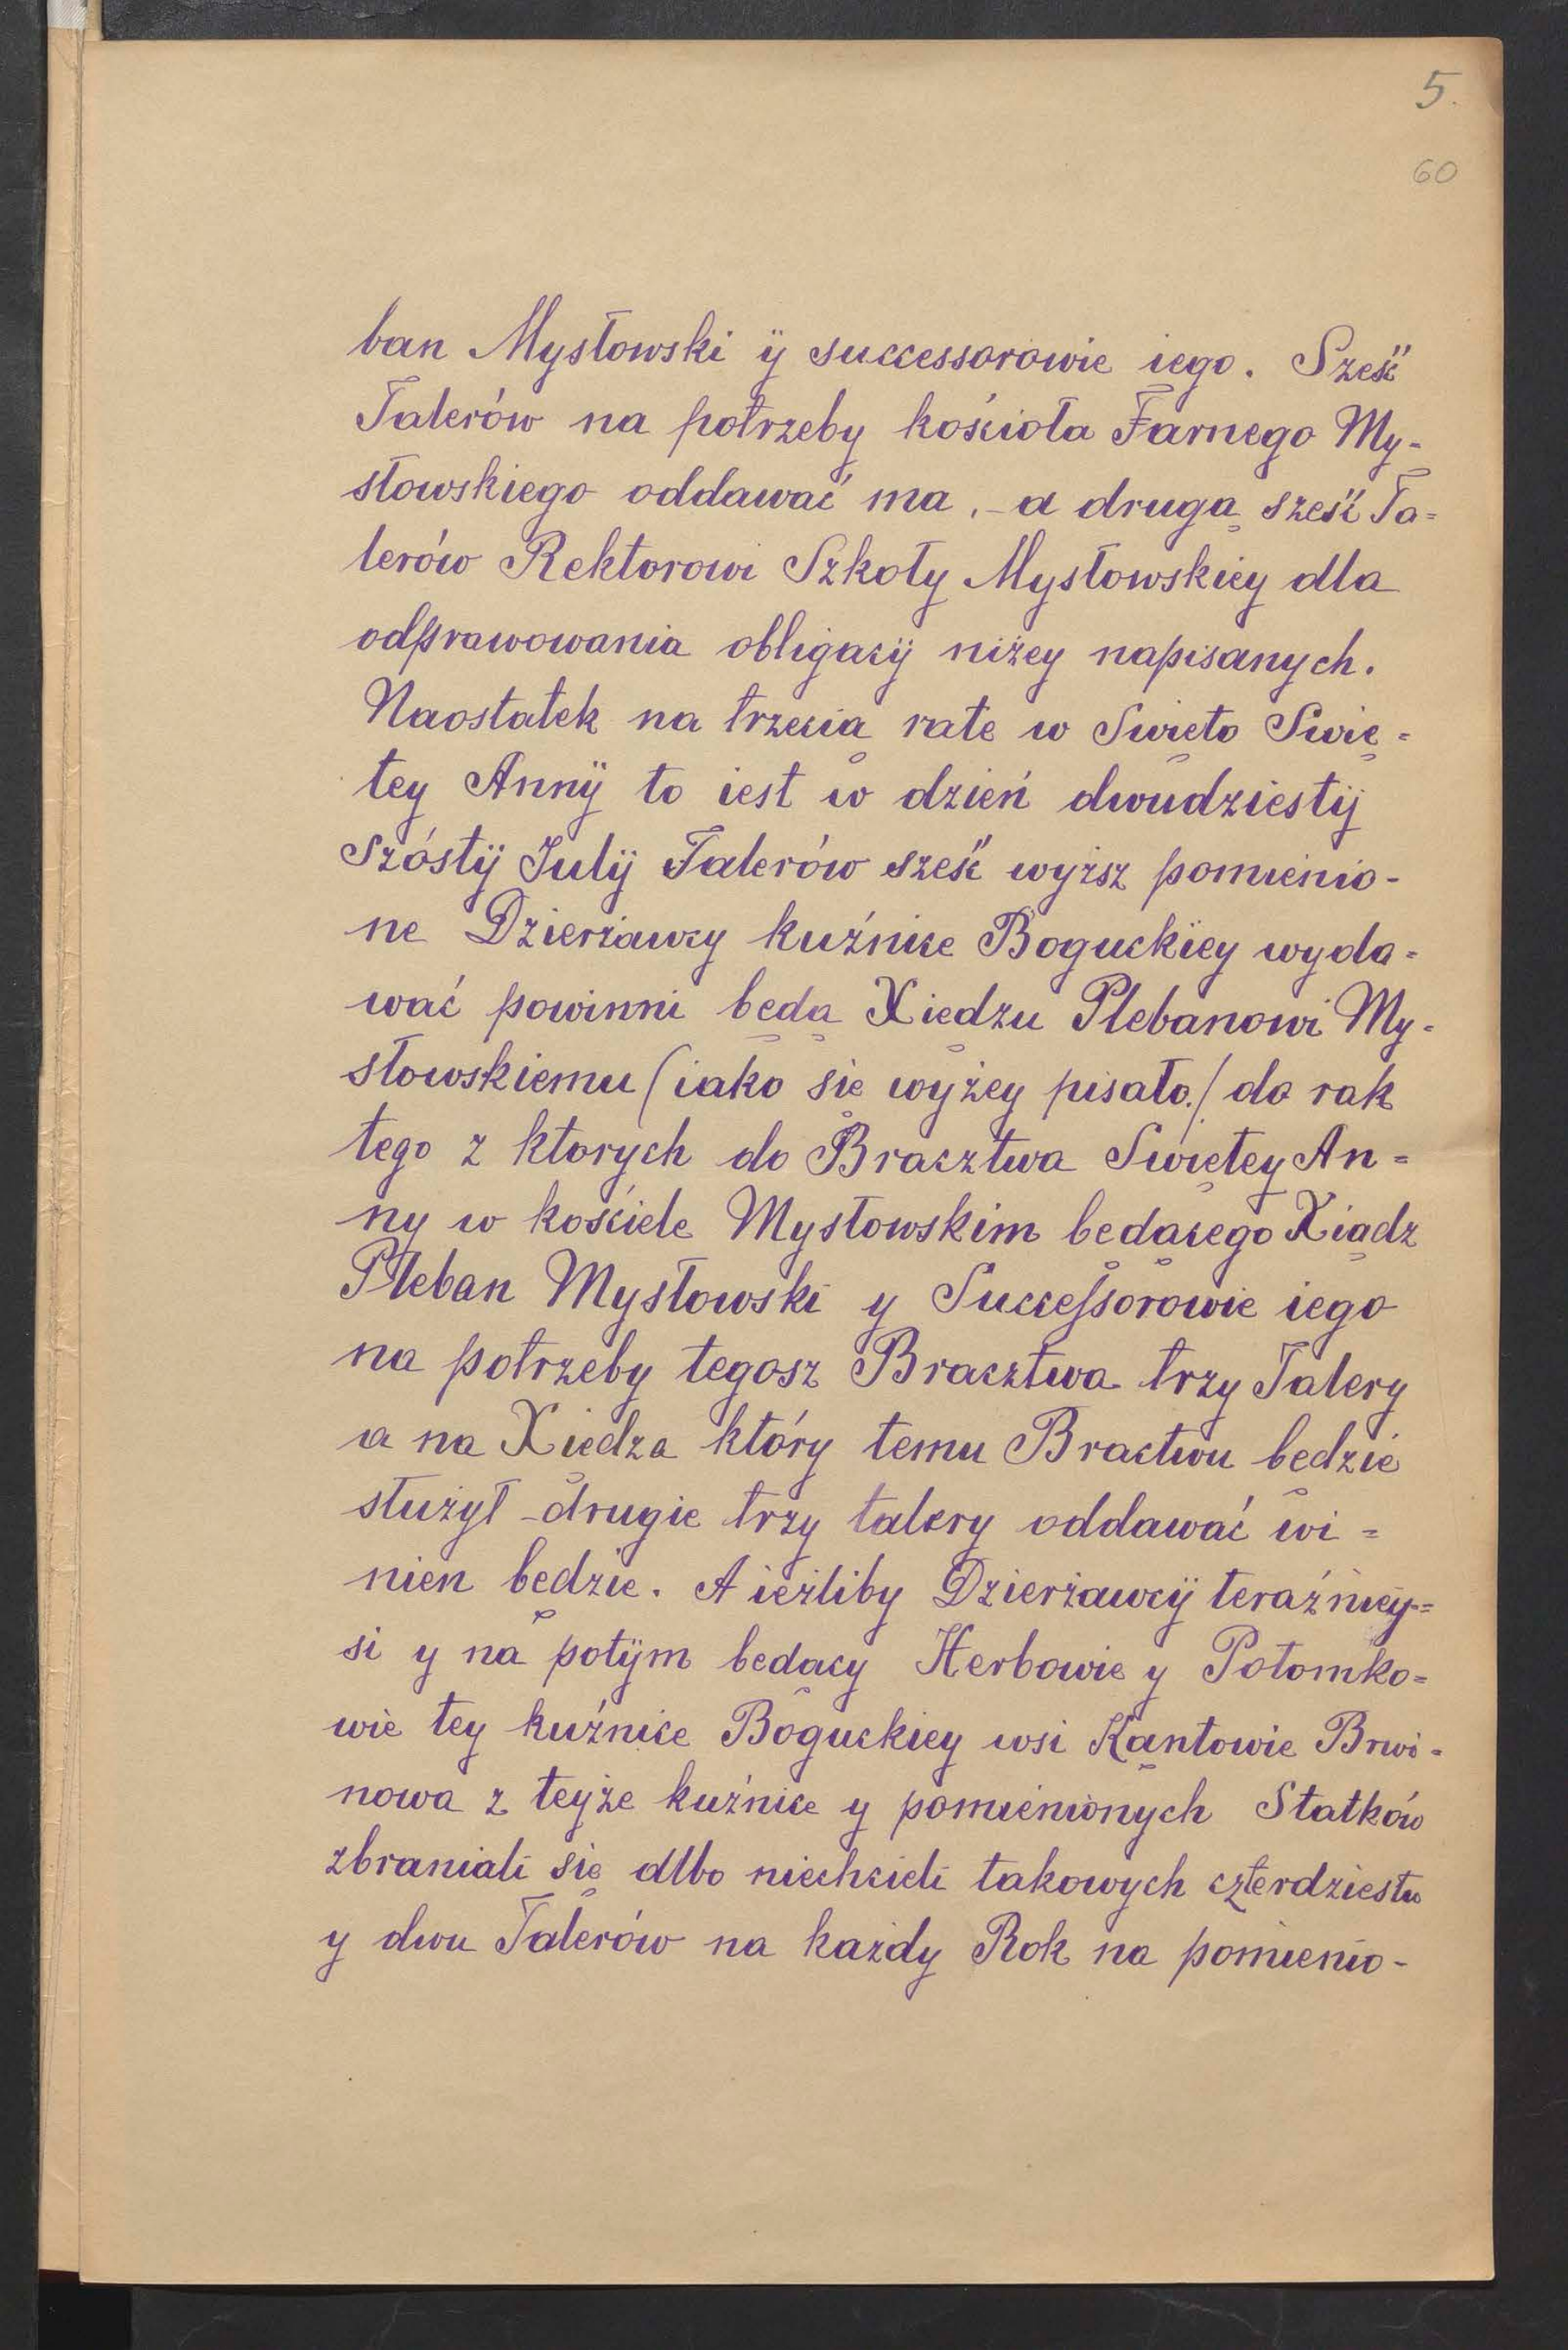 5.
60
ban Mysłowski ÿ successorowie iego. Sześć
Talerów na potrzeby kościoła Farnego My-
słowskiego oddawać ma, - a drugą sześć Ta=
lerów Rektorowi Szkoły Mysłowskiey dla
odprawowania obligacÿ niżey napisanych.
Naostatek na trzecią rate w Swięto Swię=
tey Annÿ to iest w dzień dwudziestÿ
szóstÿ Julÿ Talerów sześć wyższ pomienio-
ne Dzierżawcy kuźnice Boguckïey wyda=
wać powinni będą Xiędzu Plebanowi My-
słowskiemu (iako się wyżey pisało./ do rak
tego z ktorych do Bracztwa Swiętey An=
ny w kościele Mysłowskim będącego Xiądz
Pleban Mysłowski y Successorowie iego
na potrzeby tegosz Bracztwa trzy Talery
a na Xiędza który temu Bractwu będzie
służył - drugie trzy talery oddawać wi=
nien będzie. A ieżliby Dzierżawcÿ teraźniey=
si y na potÿm bedący Herbowie y Potomko=
wie tey kuźnice Boguckiey wsi Kąntowie Brwi=
nowa z teyże kuźnice y pomienionych Statków
zbraniali się albo niechcieli takowych czterdziestu
y dwu Talerów na każdy Rok na pomienio-